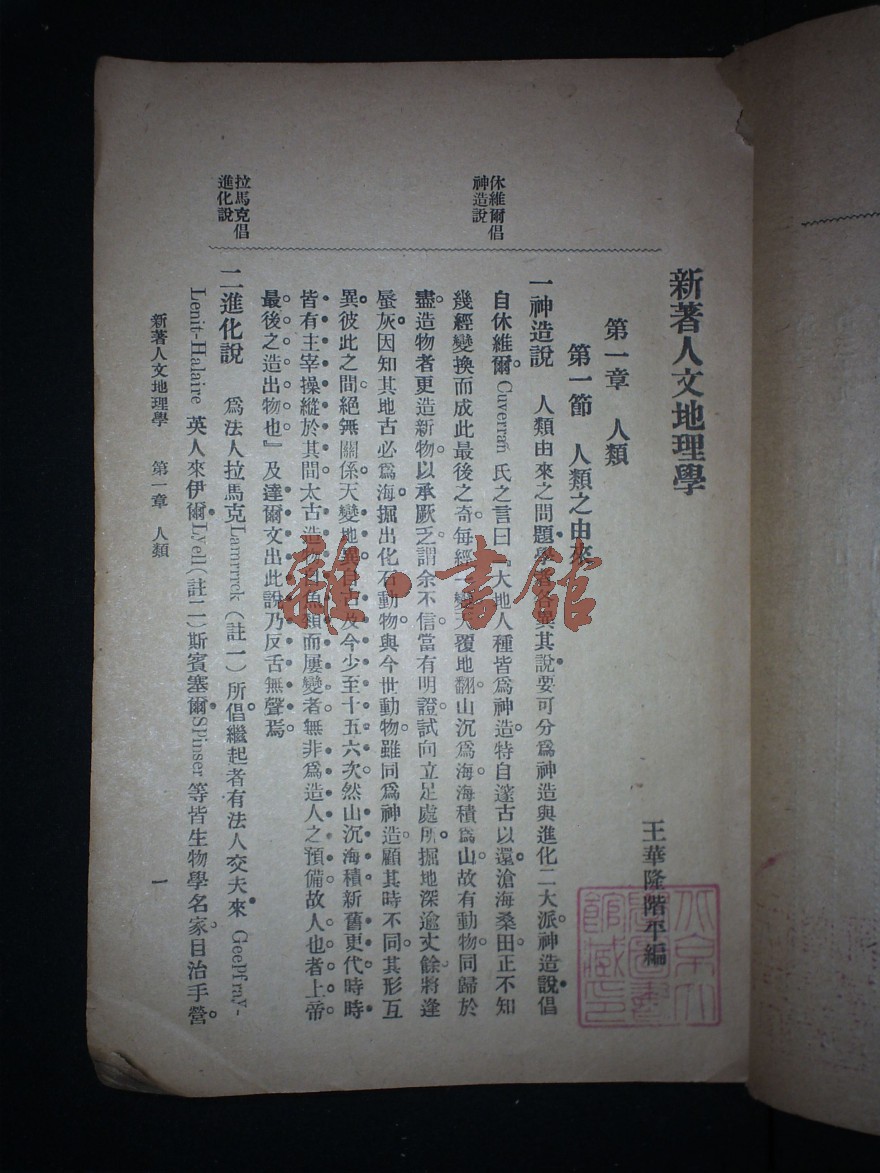 新著人文地理學
王華隆階平編
第一章 人類
第一節 人類之由來
一神造說 人類由來之問題學者各異其說要可分爲神造與進化二大派神造說倡
自休維爾 Cuverrañ 氏之言曰『大地人種皆爲神造特自邃古以還滄海桑田正不知
幾經變換而成此最後之奇每經一變天覆地翻山沉爲海海積爲山故有動物同歸於
盡造物者更造新物以承厥乏謂余不信當有明證試向立足處所掘地深逾丈餘將逢
蜃灰因知其地古必爲海掘出化石動物與今世動物雖同爲神造顧其時不同其形互
異彼此之間絕無關係天變地異自古及今少至十五六次然山沉海積新舊更代時時
皆有主宰操縱於其間太古造物自魚類而屢變者無非爲造人之預備故人也者上帝
最後之造出物也』及達爾文出此說乃反舌無聲焉
二進化說 爲法人拉馬克 Lamrrrok（註一）所倡繼起者有法人交夫來 Geepfray-
Lenit-Halaire 英人來伊爾 Lyell（註二）斯賓塞爾 Spinser 等皆生物學名家目治手營
休維爾倡
神造說
拉馬克倡
進化說
新著人文地理學 第一章 人類
一
雜·書館